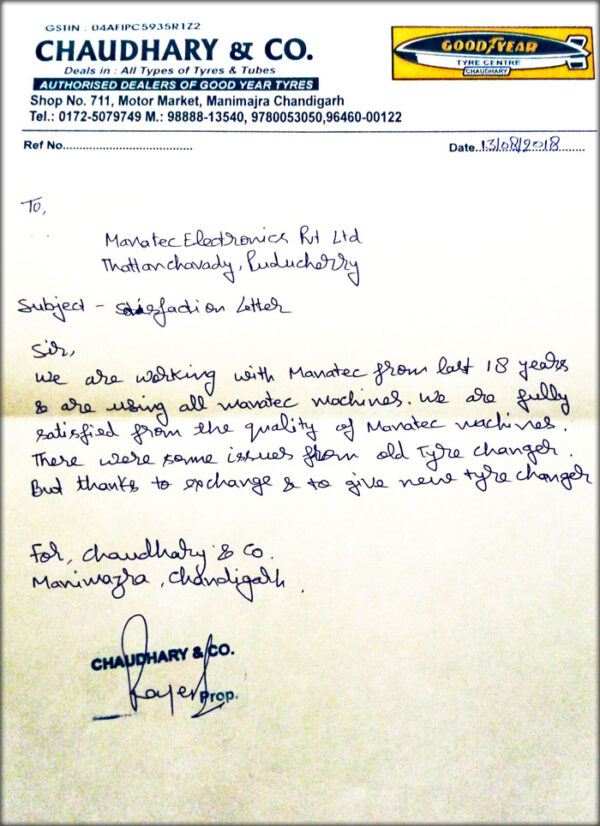 GSTIN : 04AFIPC5935R1Z2
CHAUDHARY & CO.
Deals in : All Types of Tyres & Tubes
AUTHORISED DEALERS OF GOOD YEAR TYRES
Shop No. 711, Motor Market, Manimajra Chandigarh
Tel.: 0172-5079749 M.: 98888-13540, 9780053050,96460-00122
GOODYEAR
TYRE CENTRE
CHAUDHARY
Ref No.......................................
Date..13/08/2018........
To,
Manatec Electronics Pvt Ltd
Thattanchavady, Puducherry
Subject - satisfaction Letter
Sir,
We are working with Manatec from last 18 years
& are using all manatec machines. We are fully
satisfied from the quality of Manatec machines.
There were some issues from old Tyre changer.
But thanks to exchange & to give new tyre changer
For, Chaudhary & Co.
Manimazra, Chandigarh.
CHAUDHARY & CO.
Prop.